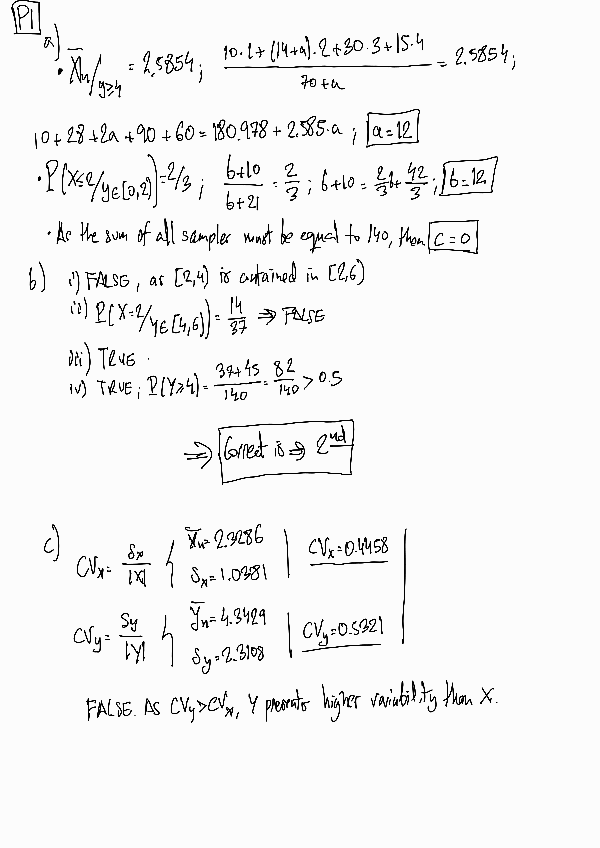 P1
a)
• X̄n/y≥4 = 2,5854; (10·1+(14+a)·2+30·3+15·4)/(70+a) = 2.5854;
10+28+2a+90+60=180.978+2.585·a; a=12
• P(X=2/Y∈[0,2))=2/3; (b+10)/(b+21) = 2/3; b+10 = 2/3b+42/3; b=12
• As the sum of all samples must be equal to 140, then c=0
b) i) FALSE, as [2,4) is contained in [2,6)
ii) P(X=2/Y∈[4,6))=14/37 ⇒ FALSE
iii) TRUE.
iv) TRUE; P(Y≥4)=(37+45)/140=82/140>0.5
⇒ Correct is ⇒ 2nd
c) CVx= Sx/|X̄| { X̄n=2.3286 Sx=1.0381 | CVx=0.4458
CVy= Sy/|Ȳ| { Ȳn=4.3429 Sy=2.3108 | CVy=0.5321
FALSE. As CVy>CVx, Y presents higher variability than X.